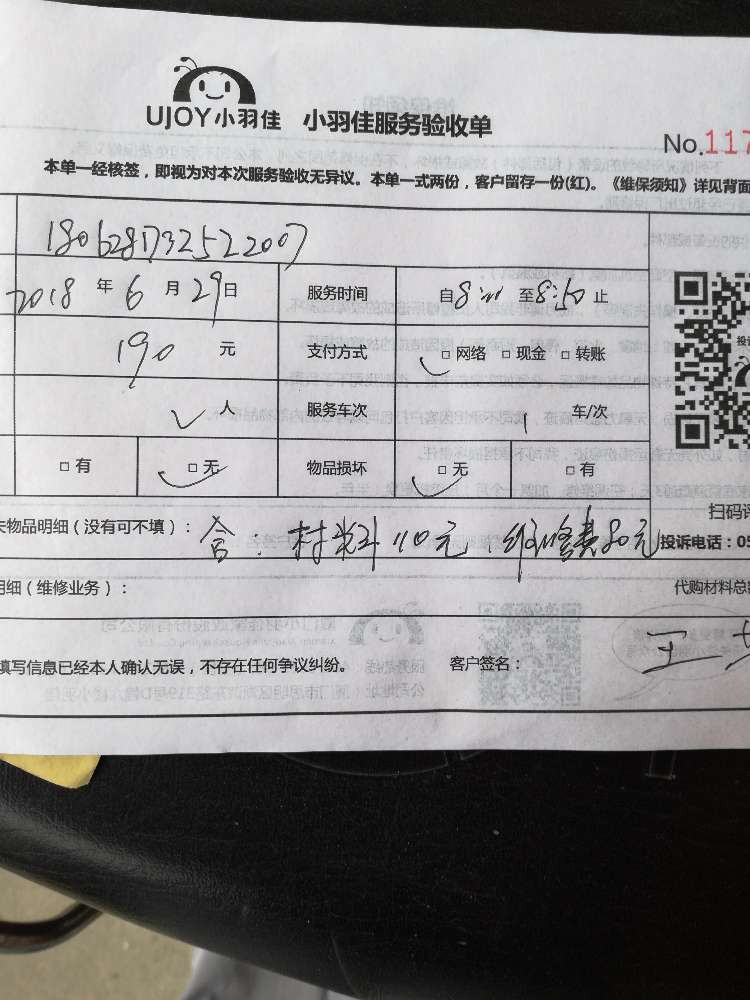 UJOY小羽佳 小羽佳服务验收单
No.117
本单一经核签，即视为对本次服务验收无异议。本单一式两份，客户留存一份(红)。《维保须知》详见背面
1806281732522007
2018 年 6 月 29 日 服务时间 自 8: 至 8:50 止
190 元 支付方式 □ 网络 □ 现金 □ 转账
人 服务车次 1 车/次
□ 有 □ 无 物品损坏 □ 无 □ 有
扫码评
物品明细（没有可不填）： 含：材料110元，维修费80元 投诉电话：05
明细（维修业务）： 代购材料总额
填写信息已经本人确认无误，不存在任何争议纠纷。 客户签名： 王